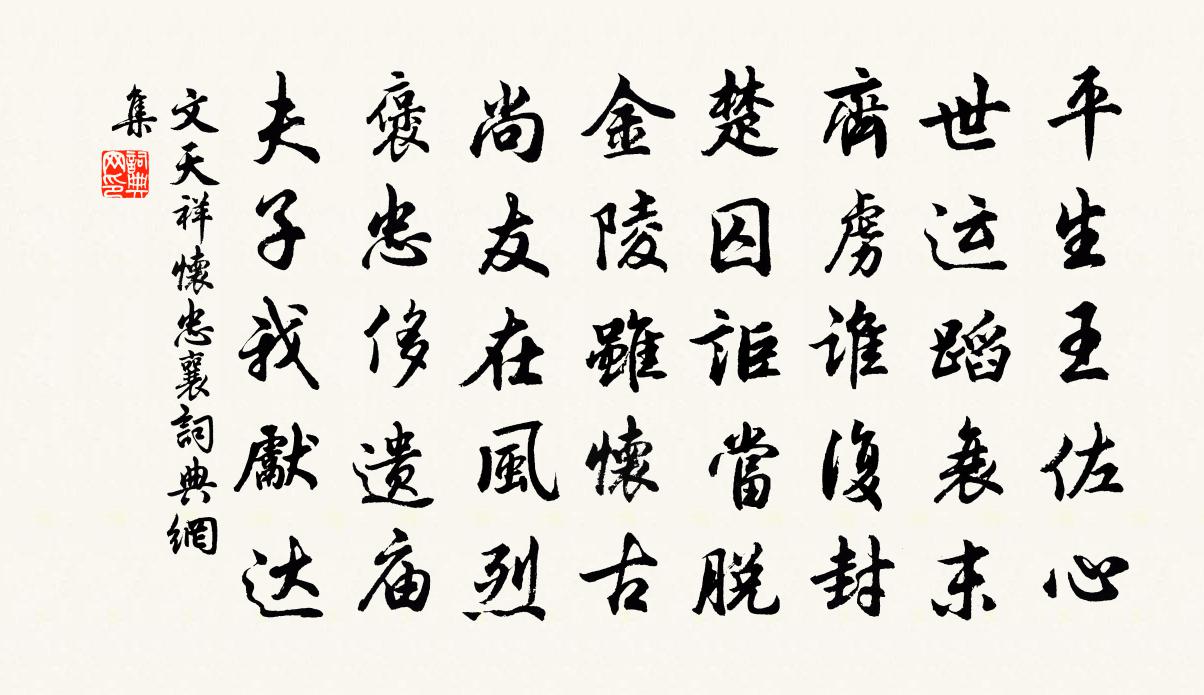 平生王佐心
世运蹈衰末
齊虜谁復封
楚囚詎當脱
金陵雖懷古
尚友在風烈
褒忠侈遗庙
夫子我獻达
文天祥懷忠襄詞典網
集
詞典网印